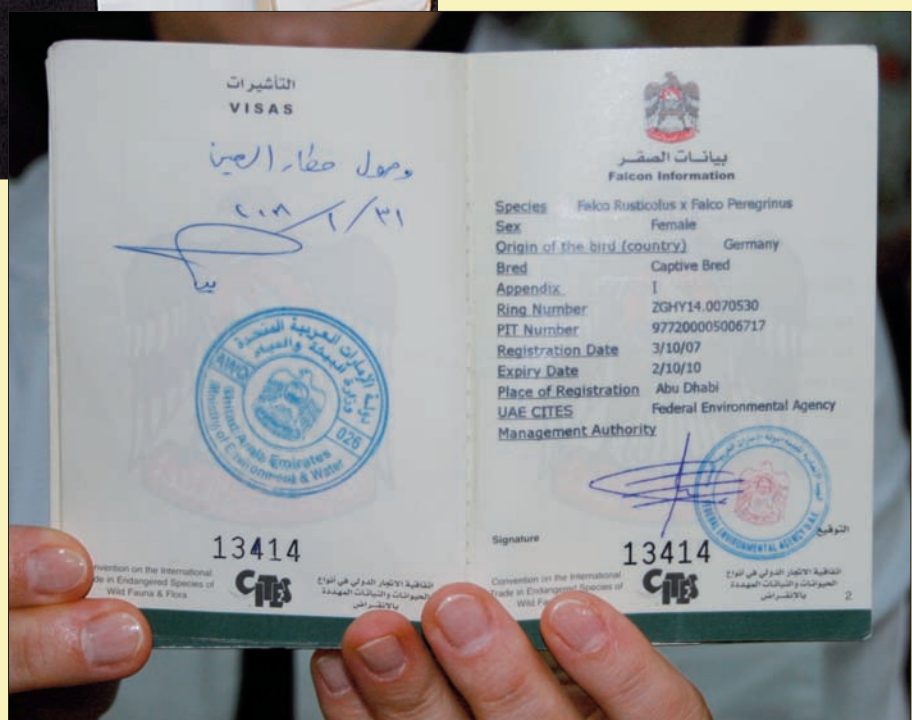 التأشيرات
VISAS
وصول مطار العين
٣١/١/٢٠٠٨
دولة الإمارات العربية المتحدة
وزارة البيئة والمياه
AWQ
026
United Arab Emirates
Ministry of Environment & Water
13414
Convention on the International
Trade in Endangered Species of
Wild Fauna & Flora
CITES
اتفاقية الاتجار الدولي في أنواع
الحيوانات والنباتات المهددة
بالانقراض
بيانات الصقر
Falcon Information
Species Falco Rusticolus x Falco Peregrinus
Sex Female
Origin of the bird (country) Germany
Bred Captive Bred
Appendix I
Ring Number ZGHY14.0070530
PIT Number 977200005006717
Registration Date 3/10/07
Expiry Date 2/10/10
Place of Registration Abu Dhabi
UAE CITES Federal Environmental Agency
Management Authority
FEDERAL ENVIRONMENTAL AGENCY U.A.E
Signature
التوقيع
13414
Convention on the International
Trade in Endangered Species of
Wild
CITES
اتفاقية الاتجار الدولي في أنواع
الحيوانات والنباتات المهددة
بالانقراض
2